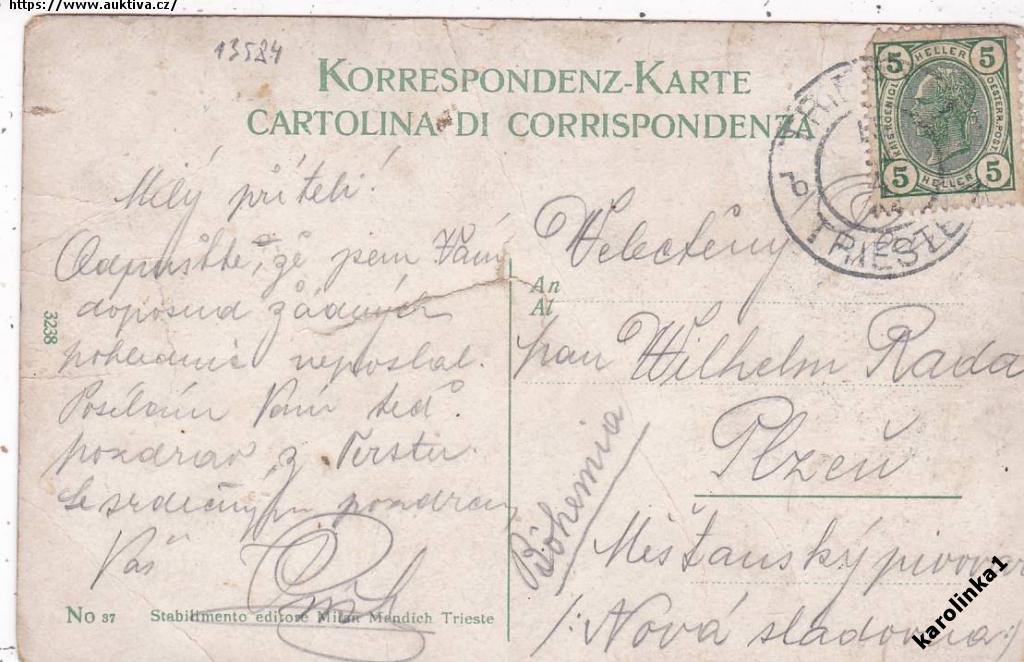 https://www.auktiva.cz/
13584
KORRESPONDENZ-KARTE
CARTOLINA DI CORRISPONDENZA
5 HELLER 5
KAIS.KOENIGL. OESTERR.POST.
5 HELLER 5
TRIESTE
Milý příteli!
Odpusťte, že jsem Vám
doposud žádných
pohlednic neposlal.
Posílám Vám teď
pozdrav z Terstu.
Se srdečným pozdravem
Váš
3238
Velectěný
An
Al
pan Wilhelm Rada
Plzeň
Böhemia
Mešťanský pivovar
/: Nová sladovna :/
No 37 Stabilimento editore Milan Mandich Trieste
karolinka1